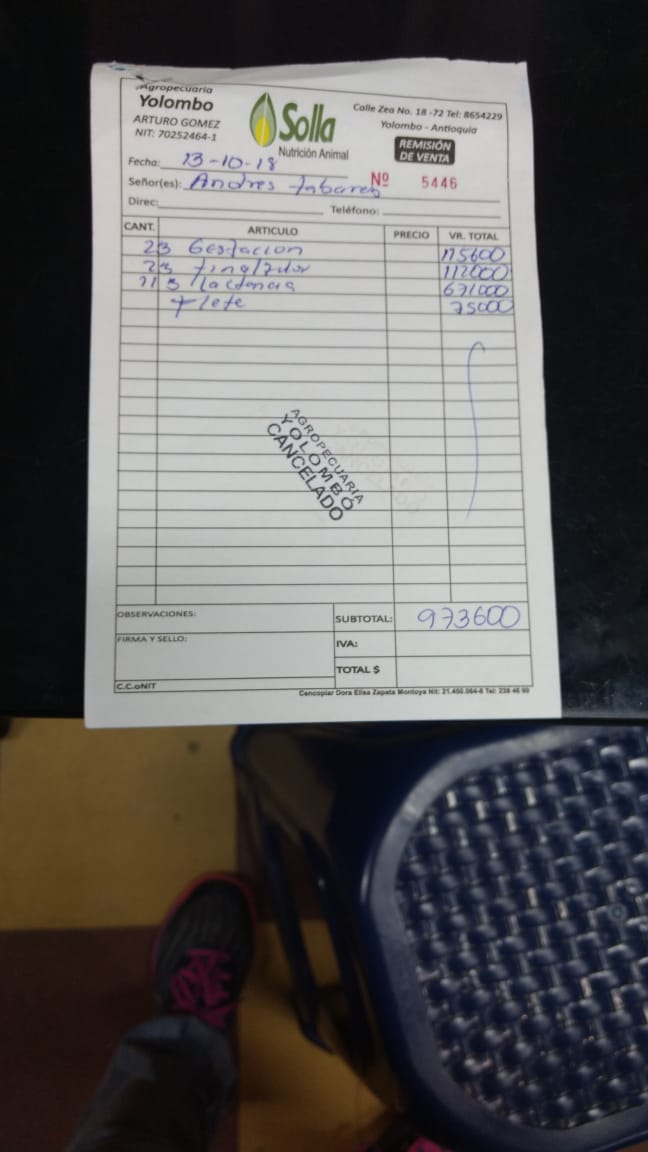 Agropecuaria
Yolombo
ARTURO GOMEZ
NIT: 70252464-1
Solla
Nutrición Animal
Calle Zea No. 18 -72 Tel: 8654229
Yolombo - Antioquia
REMISIÓN
DE VENTA
Fecha: 13-10-18
Señor(es): Andres Tabares
Nº 5446
Direc: Teléfono:
CANT. ARTICULO PRECIO VR. TOTAL
2B Gestacion 115600
2B 112000
11 B lactancia 671000
Flete 75000
AGROPECUARIA
YOLOMBÓ
CANCELADO
OBSERVACIONES:
SUBTOTAL: 973600
FIRMA Y SELLO:
IVA:
TOTAL $
C.C.oNIT
Cencopiar Dora Elisa Zapata Montoya Nit: 21.450.064-8 Tel: 238 46 60